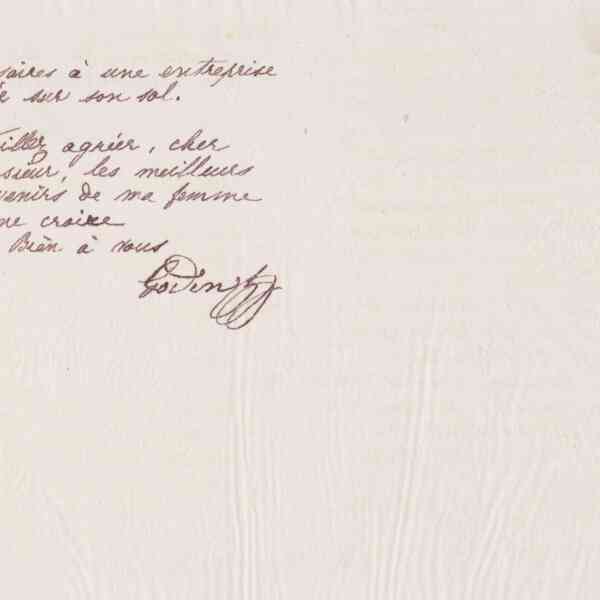 saires à une entreprise
sur son sol.
agréer, cher
sieur, les meilleurs
venirs de ma femme
me croire
Bien à vous
Godin